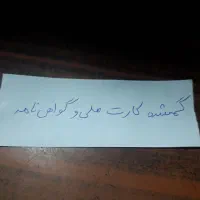 گمشده کارت ملی و گواهی نامه